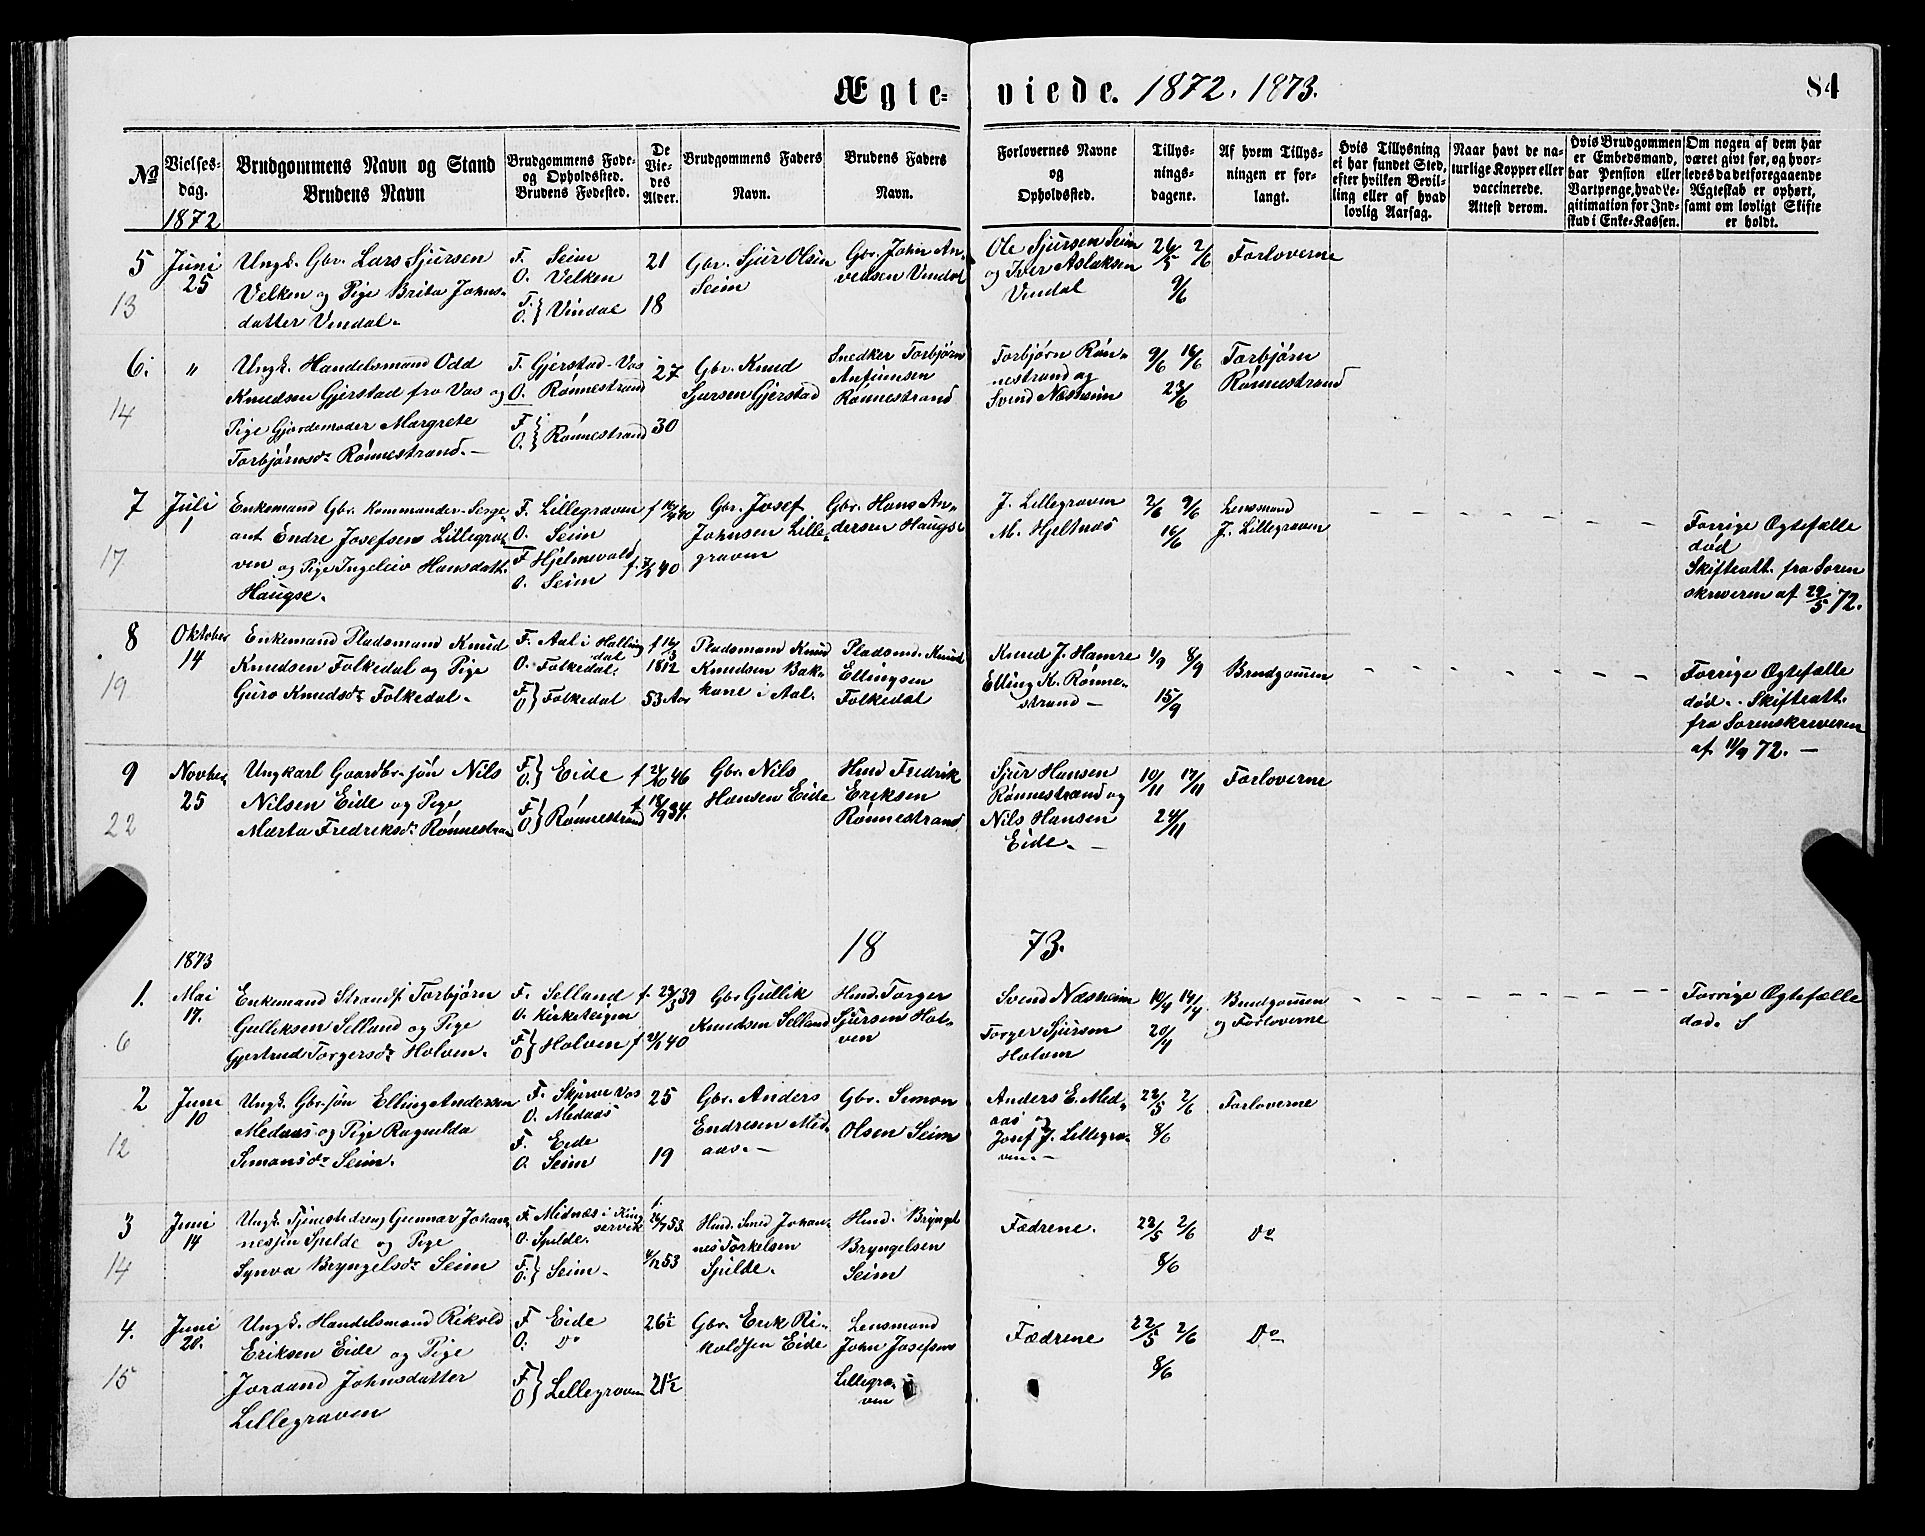 Ægte- viede. 1872. 1873.
84
No
Vielses-
dag.
1872
Brudgommens Navn og Stand
Brudens Navn
Brudgommens Føde-
og Opholdssted.
Brudens Fødested.
De
Vie-
des
Alder.
Brudgommens Faders
Navn.
Brudens Faders
Navn.
Forlovernes Navne
og
Opholdssted.
Tillys-
nings-
dagene.
Af hvem Tillys-
ningen er for-
langt.
Hvis Tillysning
ei har fundet Sted,
efter hvilken Bevil-
ling eller af hvad
lovlig Aarsag.
Naar havt de na-
turlige Kopper eller
vaccinerede.
Attest derom.
Hvis Brudgommen
er Embedsmand,
har Pension eller
Vartpenge, hvad Le-
gitimation for Ind-
skud i Enke-Kassen.
Om nogen af dem har
været gift før, og hvor-
ledes da det foregaaende
Ægteskab er ophørt,
samt om lovligt Skifte
er holdt.
5
13
Juni
25
Ungk. Gbr. Lars Sjursen
Velken og Pige Brita Johns-
datter Vindal.
F. Seim
O. Velken
F. O. } Vindal
21
18
Gbr. Sjur Olsen
Seim
Gbr. John An-
vedsen Vindal
Ole Sjursen Seim
og Iver Aslaksen
Vindal
26/5 2/6
9/6
Forloverne
6.
14
"
Ungk. Handelsmand Odd
Knudsen Gjerstad fra Vos og
Pige Gjordemoder Margrete
Torbjørnsdr Rønnestrand. -
F. Gjerstad - Vos
O. Rønnestrand
F. O. } Rønnestrand
27
30
Gbr. Knud
Sjursen Gjerstad
Snedker Torbjørn
Anfinnsen
Rønnestrand
Torbjørn Røn-
nestrand og
Svend Næsheim
9/6 16/6
23/6
Torbjørn
Rønnestrand
7
17
Juli
1
Enkemand Gbr. Kommander-Serge-
ant Endre Josefsen Lillegra-
ven og Pige Ingeleiv Hansdatt.
Haugse.
F. Lillegraven
O. Seim
F. Hjelmevold
O. Seim
f 40
f. 40
Gbr. Josef
Johnsen Lille-
graven
Gbr. Hans An-
dersen Haugse
J. Lillegraven
M. Hjeltnæs
2/6 9/6
16/6
Lensmand
J. Lillegraven
- - - - - - - -
Forrige Egtefælle
død
Skifteatt. fra Soren
skriveren af 29/5 72.
8
19
Oktober
14
Enkemand Pladsmand Knud
Knudsen Folkedal og Pige
Guro Knudsdr Folkedal.
F. Aal i Halling
dal
O. Folkedal.
F. O } Folkedal
f 16/3
1812
53 Aar
Pladsmand Knud
Knudsen Bak-
kene i Aal.
Pladsmd. Knud
Ellingsen
Folkedal
Knud J. Hamre
Elling K. Rønne-
strand -
1/9 8/9
15/9
Brudgommen
- - - - - - - -
Forrige Egtefælle
død. Skifteatt.
fra Sorenskriveren
af 11/9 72. -
9
22
Novber
25
Ungkarl Gaardbr.søn Nils
Nilsen Eide og Pige
Marta Fredriksdr Rønnestrand
F. O. } Eide
F. O. } Rønnestrand
f 24/10 46
f 18/9 34.
Gbr. Nils
Hansen Eide
Hmd Fredrik
Eriksen
Rønnestrand
Sjur Hansen
Rønnestrand og
Nils Hansen
Eide. -
10/11 17/11
24/11
Forloverne
18 73.
1873
1.
6
Mai
17.
Enkemand Strands. Torbjørn
Gulliksen Selland og Pige
Gjertrud Torgersdr Holven.
F. Selland
O. Kirketeigen
F. O } Holven
f. 29/3 39
f 40
Gbr Gullik
Knudsen Selland
Hmd. Torger
Sjursen Hol-
ven
Svend Næsheim
Torger Sjursen
Holven
10/4 14/4
20/4
Brudgommen
og Forloverne
- - - - - - - -
Forrige Egtefælle
død.
2
12
Juni
10
Ungk. Gbr.søn Elling Andersen
Medaas og Pige Ragnilda
Simonsdr Seim.
F. Skjerve Vos
O. Medaas
F. Eide
O. Seim
25
19
Gbr. Anders
Endresen Med-
aas. -
Gbr. Simon
Olsen Seim
Anders E. Med-
aas og
Josef J. Lillegra-
ven. -
22/5 2/6
8/6
Forloverne
3
14
Juni
14
Ungk. Tjenestedreng Gunnar Johan-
nessen Spilde og Pige
Synva Bryngelsdr Seim
F. Midnæs i Kin
servik
O. Spilde.
F. O. } Seim.
f. 26/7 53.
4/12 53
Hmd. Smed Johan-
nes Torkelsen
Spilde.
Hmd. Bryngel
Bryngelsen
Seim
Fædrene.
22/5 2/6
8/6
Do
4.
15
Juni
20.
Ungk. Handelsmand Rikold
Eriksen Eide og Pige
Joraand Johnsdatter
Lillegraven
F Eide
O. Do
F O } Lillegraven
26½
21½
Gbr. Erik Ri-
koldsen Eide
Lensmand
John Josefsen
Lillegra-
ven
Fædrene
22/5 2/6
8/6
Do